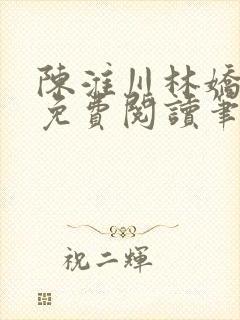 陳淮川林嬌
免費閱讀筆
祝二輝